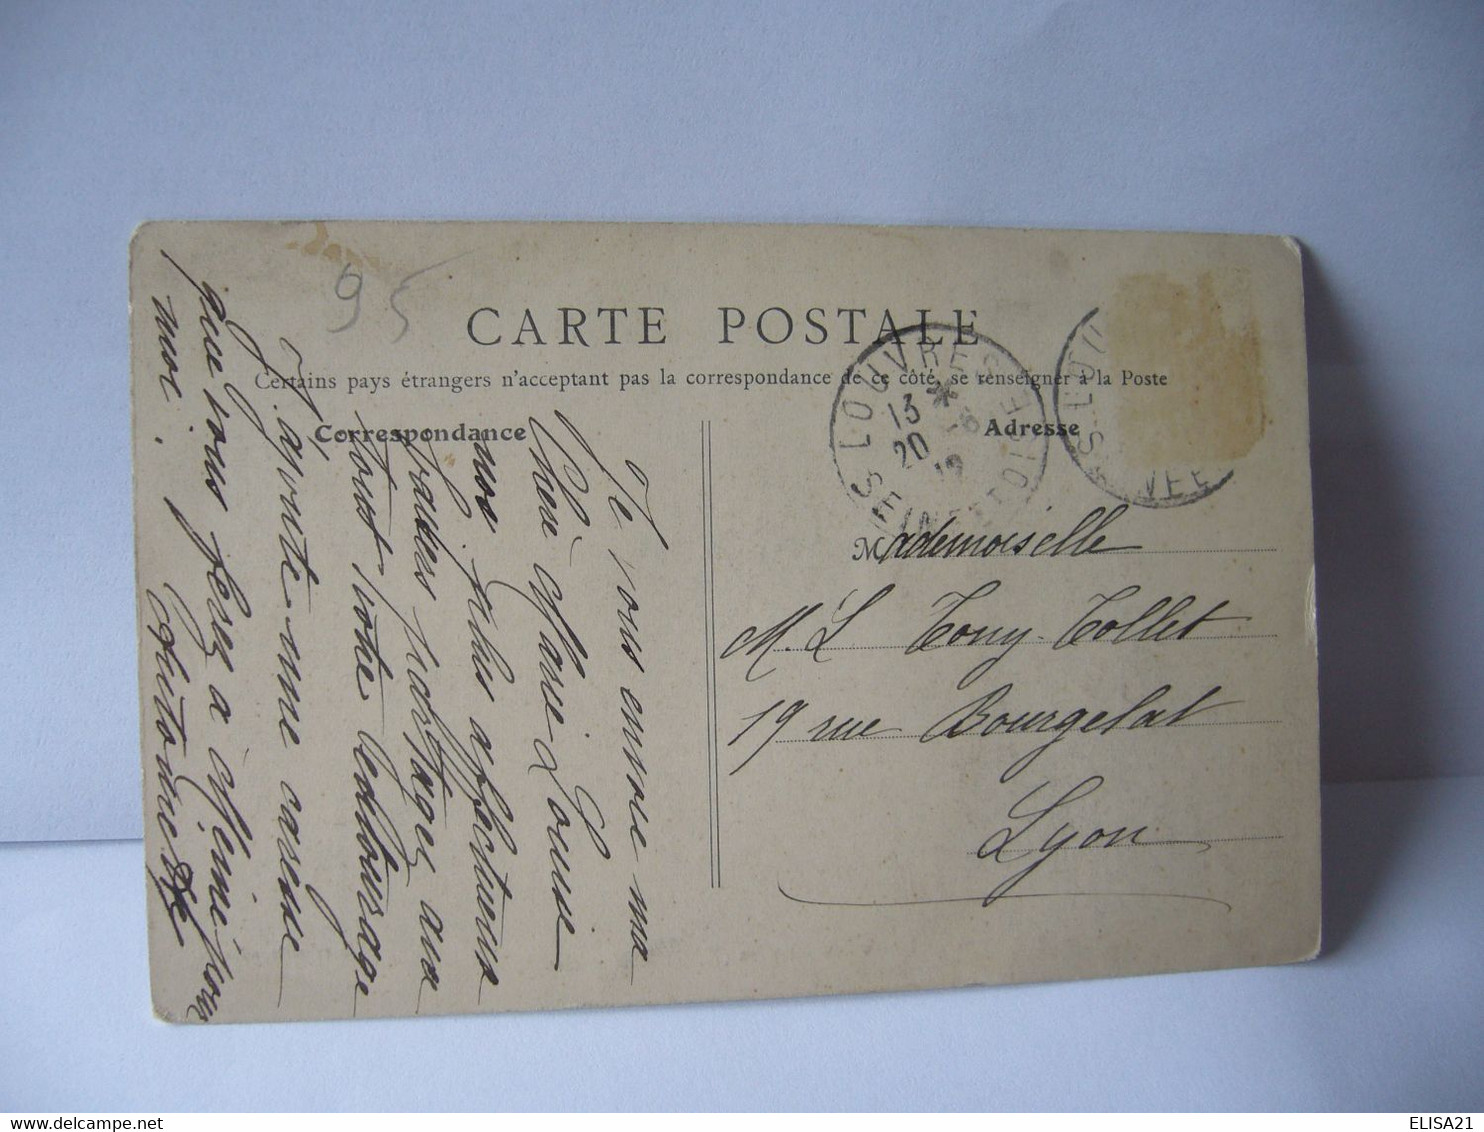 95
CARTE POSTALE
Certains pays étrangers n'acceptant pas la correspondance de ce côté, se renseigner à la Poste
Correspondance
Adresse
LOUVRES
13 * -8
20 12
SEINE ET OISE
Je vous envoie ma
Chère Marie Louise
mes plus affectueux
baisers partagez aux
tout votre entourage
J'ajoute une caresse
que vous ferez à Mimi pour
moi.
Mademoiselle
M. L Tony-Tollet
19 rue Bourgelat
Lyon
ELISA21